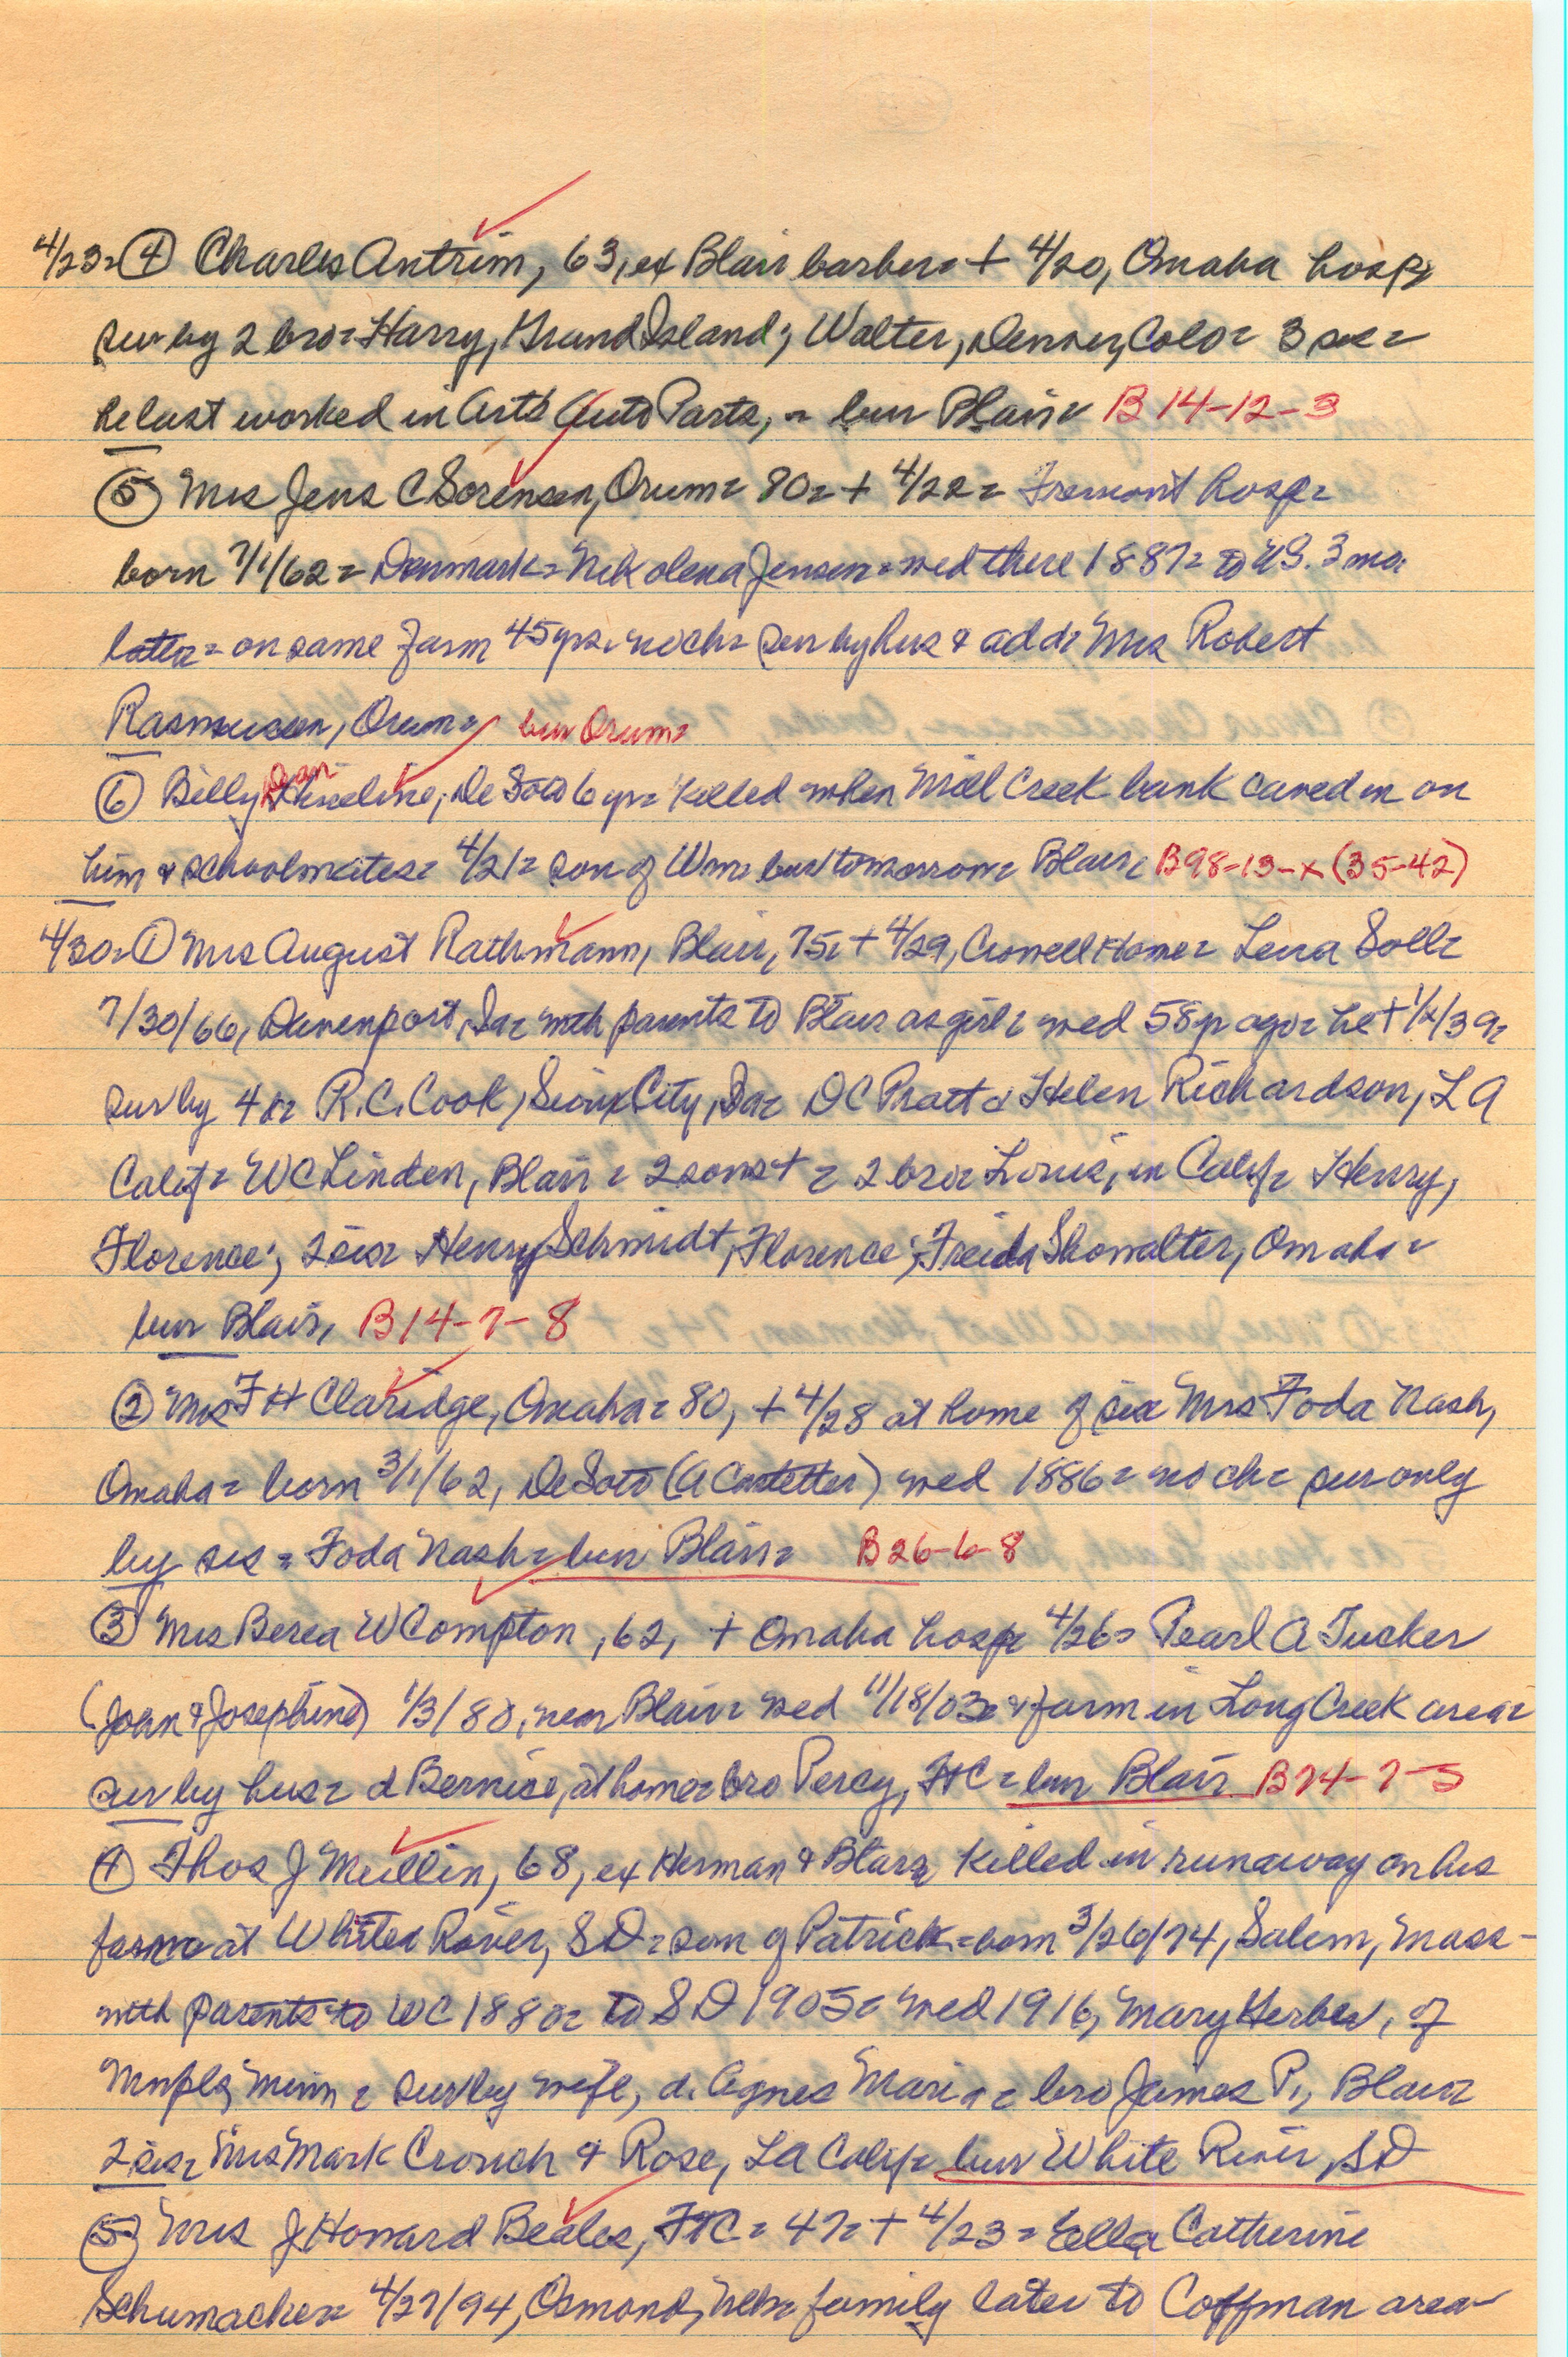 4/23= ④ Charles Antrim, 63, ex Blair barber= + 4/20, Omaha hosp=
sur by 2 bro= Harry, Grand Island; Walter, Denver, Colo= 3 sis=
he last worked in Art's Auto Parts, = bur Blair= B 14-12-3
⑤ Mrs Jens C Sorensen, Orum= 80= + 4/22= Fremont hosp=
born 7/1/62= Denmark= Nikolena Jensen= wed there 1887= to US. 3 mo
later= on same farm 45 yrs= no ch= sur by hus & ad d= Mrs Robert
Rasmussen, Orum= bur Orum=
⑥ Billy Dan Hineline, De Soto 6 yr= killed when Mill Creek bank caved in on
him & schoolmates= 4/21= son of Wm= bur tomorrow= Blair= B98-13-x (35-42)
4/30= ① Mrs August Rathmann, Blair, 75= + 4/29, Crowell Home= Lena Soll=
7/30/66, Davenport, Ia= with parents to Blair as girl= wed 58 yr ago= he + 1/2/39=
sur by 4 d= R.C. Cook, Sioux City, Ia= DC Pratt & Helen Richardson, LA
Calif= WC Linden, Blair= 2 sons + = 2 bro= Louis, in Calif= Henry,
Florence; 2 sis= Henry Schmidt, Florence; Freida Showalter, Omaha=
bur Blair, B14-7-8
② Mrs F H Claridge, Omaha= 80, + 4/28 at home of sis Mrs Foda Nash,
Omaha= born 3/1/62, DeSoto (A Castetter) wed 1886= no ch= sur only
by sis= Foda Nash= bur Blair= B26-6-8
③ Mrs Berea W Compton, 62, + Omaha hosp= 4/26= Pearl A Tucker
(John & Josephine) 1/3/80, near Blair= wed 11/18/03= & farm in Long Creek area=
sur by hus= d Bernice, at home= bro Percy, FtC= bur Blair B74-7-5
④ Thos J Mullin, 68, ex Herman & Blair= killed in runaway on his
farm at White River, SD= son of Patrick= born 3/26/74, Salem, Mass=
with parents to WC 1880= to SD 1905= wed 1916, Mary Herber, of
Mnpls, Minn= sur by wife, d. Agnes Maria= bro James P., Blair=
2 sis= Mrs Mark Crouch & Rose, LA Calif= bur White River, SD
⑤ Mrs J Howard Beales, FtC= 47= + 4/23= Ella Catherine
Schumacher= 4/27/94, Osmond, Neb= family later to Coffman area=